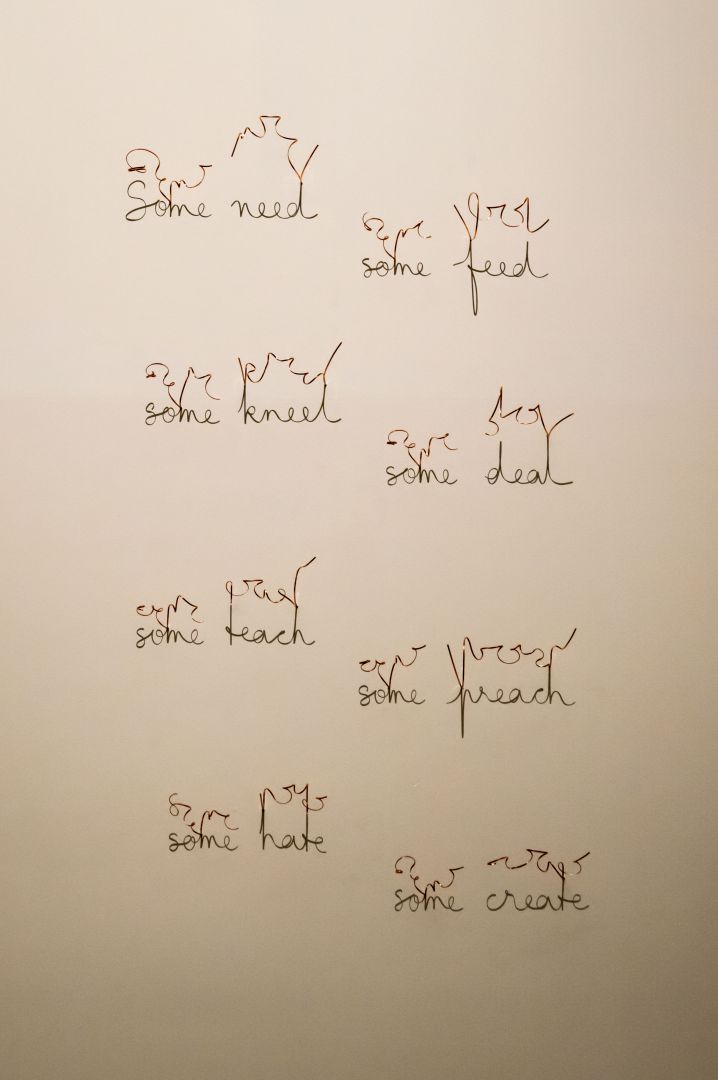 Some need
some feed
some kneel
some deal
some teach
some preach
some hate
some create